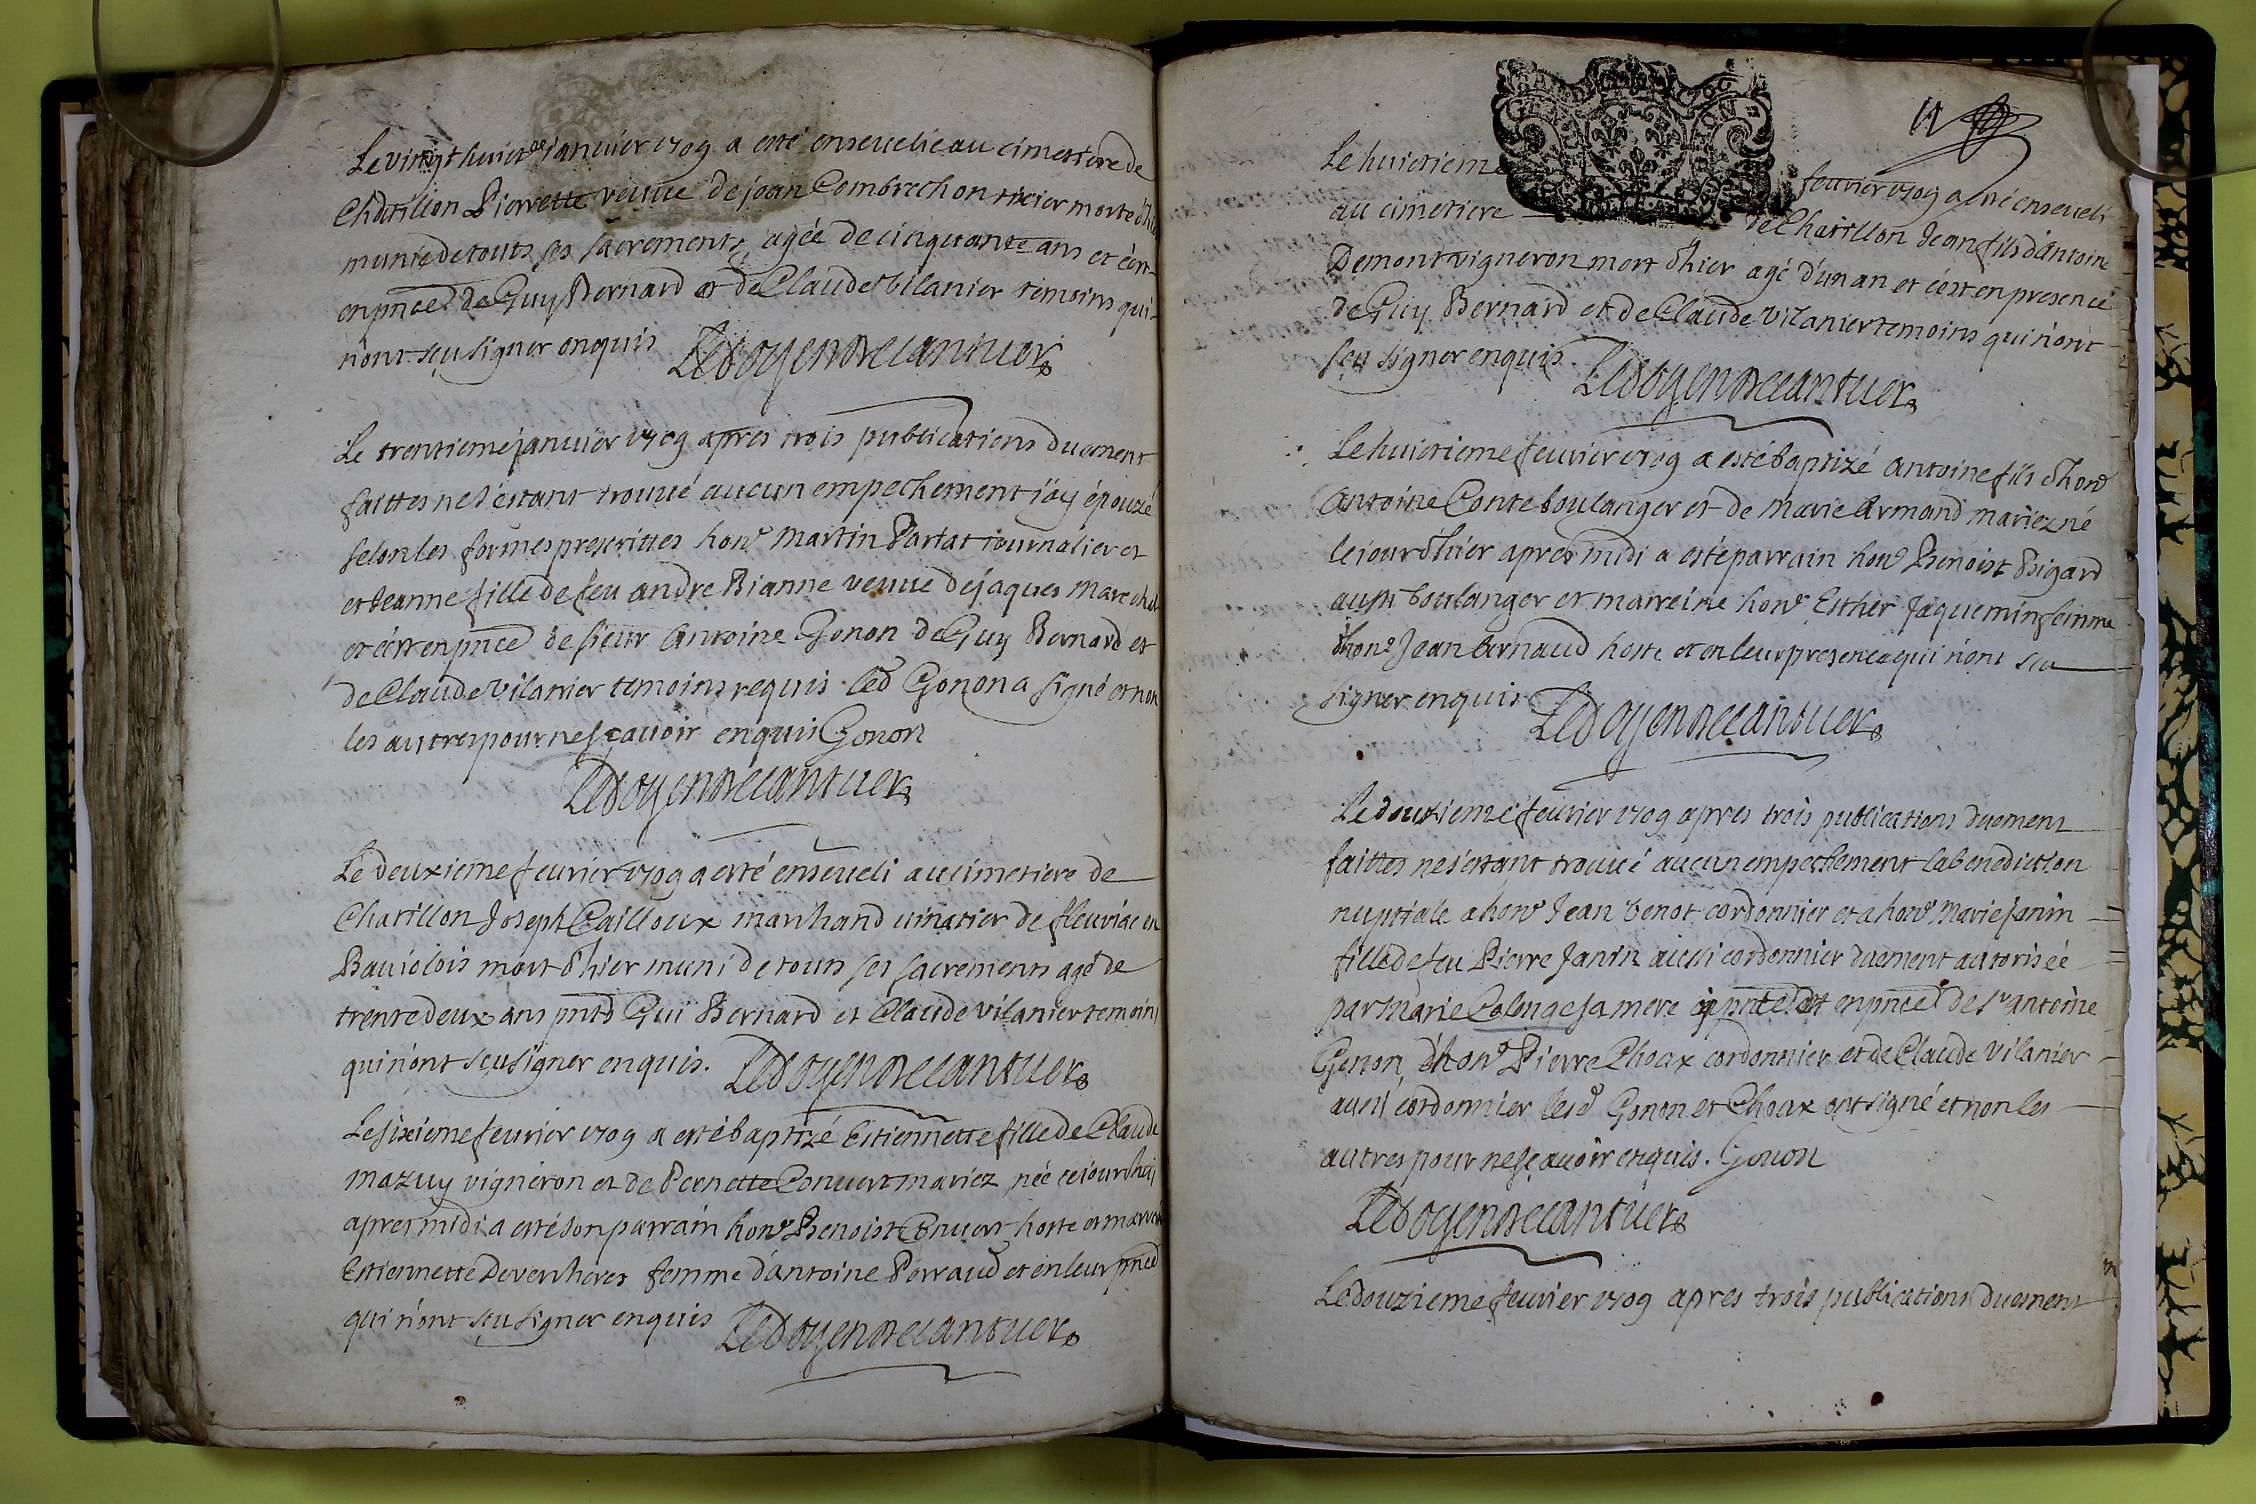 Le vingt huict.e janvier 1709 a esté ensevelie au cimetiere de
Chatillon Pierrette veuve de jean Combrechon mort d'hier
munie de touts ses sacrements, agée de cinquante ans et c'est
en pnce de Guy Bernard et de Claude vilanier temoins qui
n'ont sçu signer enquis Ledoyen
Le trentieme janvier 1709 apres trois publications duement
faittes ne s'estant trouvé aucun empechement j'ay épouzé
selon les formes prescrittes hon.e Martin Partat journalier et
et Jeanne fille de feu andre Bianne veuve de jaques Marechal
et c'est en pnce de sieur Antoine Gonon de Guy Bernard et
de Claude vilanier temoins requis led Gonon a signé et non
les autres pour ne sçavoir enquis Gonon
Ledoyen
Le deuxieme fevrier 1709 a esté enseveli au cimetiere de
Chatillon Joseph Cailloux marchand vinatier de fleuriac en
Baujolois mort d'hier muni de touts ses sacrements agé de
trente deux ans pnts Gui Bernard et Claude vilanier temoins
qui n'ont sçu signer enquis. Ledoyen
Le sixieme fevrier 1709 a esté baptizé Estiennette fille de Claude
mazuy vigneron et de Pernette Convert mariez née cejourdhuy
apres midi a esté son parrain hon.e Benoist Convert hoste et marreine
Estiennette Devenheres femme d'antoine Perraud et en leur pnce
qui n'ont sçu signer enquis Ledoyen
11
Le huictieme fevrier 1709 a esté enseveli
au cimetiere de Chatillon Jean fils d'Antoine
Demont vigneron mort d'hier agé d'un an et c'est en presence
de Guy Bernard et de Claude vilanier temoins qui n'ont
sçu signer enquis Ledoyen
Le huictieme fevrier 1709 a esté baptizé Antoine fils d'hon.e
Antoine Conte boulanger et de Marie Armand mariez né
le jour d'hier apres midi a esté parrain hon.e Benoist Bigard
aussi boulanger et marreine hon.e Esther Jaquemin femme
d'hon.e Jean Arnaud hoste et en leur presence qui n'ont sçu
signer enquis Ledoyen
Le douxieme fevrier 1709 apres trois publications duement
faittes ne s'estant trouvé aucun empechement la benediction
nuptiale a hon.e Jean benot cordonnier et a hon.e Marie Janin
fille de feu Pierre Janin aussi cordonnier duement autorisée
par Marie Colonge sa mere cy pnte et en pnce de s.r antoine
Gonon, d'hon.e Pierre Choax cordonnier et de Claude vilanier
aussi cordonnier lesd Gonon et Choax ont signé et non les
autres pour ne sçavoir enquis. Gonon
Ledoyen
Le douzieme fevrier 1709 apres trois publications duement